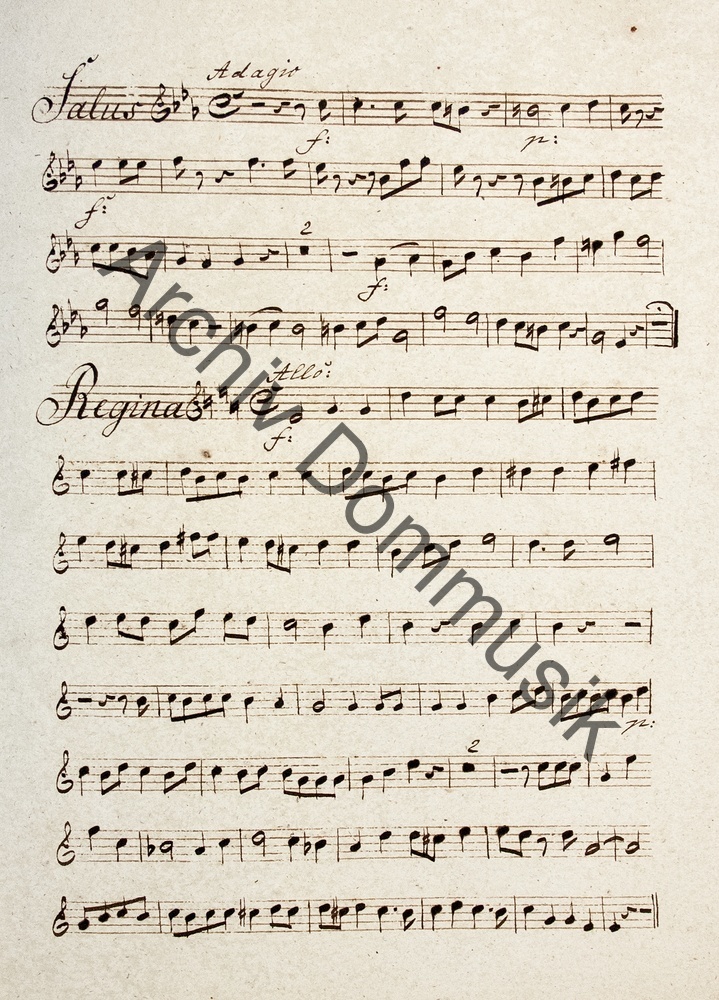 Adagio
Salus
f: p:
f:
2
f:
Allo:
Regina
f:
p:
2
Archiv Dommusik